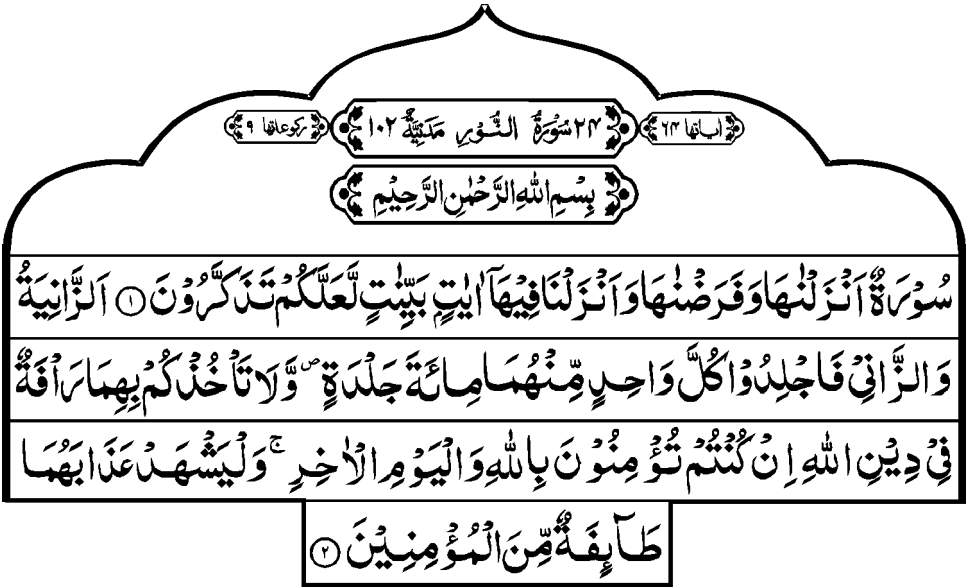 اٰیاتها ۶۴
۲۴ سُوْرَةُ النُّوْرِ مَدَنِیَّةٌ ۱۰۲
رکوعاتها ۹
بِسْمِ اللهِ الرَّحْمٰنِ الرَّحِیْمِ
سُوْرَةٌ اَنْزَلْنٰهَا وَ فَرَضْنٰهَا وَ اَنْزَلْنَا فِیْهَاۤ اٰیٰتٍۭ بَیِّنٰتٍ لَّعَلَّكُمْ تَذَكَّرُوْنَ ۱ اَلزَّانِیَةُ
وَ الزَّانِیْ فَاجْلِدُوْا كُلَّ وَاحِدٍ مِّنْهُمَا مِائَةَ جَلْدَةٍ ۪ وَّ لَا تَاْخُذْكُمْ بِهِمَا رَاْفَةٌ
فِیْ دِیْنِ اللهِ اِنْ كُنْتُمْ تُؤْمِنُوْنَ بِاللهِ وَ الْیَوْمِ الْاٰخِرِ ۚ وَ لْیَشْهَدْ عَذَابَهُمَا
طَآىِٕفَةٌ مِّنَ الْمُؤْمِنِیْنَ ۲